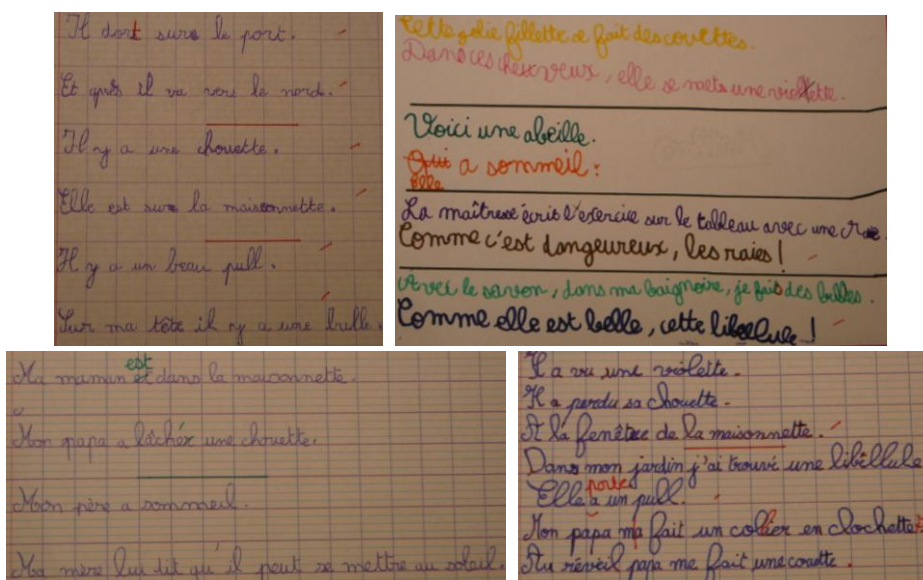 Il dort sure le port.
Et après il va vers le nord.
Il y a une chouette.
Elle est sure la maisonnette.
Il y a un beau pull.
Sur ma tête il n'y a une bulle.
Cette jolie fillette se fait des couettes.
Dans ces cheuveux, elle se mets une violette.
Voici une abeille.
a sommeil.
Elle
La maîtresse écrit l'exercice sur le tableau avec une craie.
Comme c'est dangeureux, les raies !
Avec le savon, dans ma baignoire, je fais des bulles.
Comme elle est belle, cette libellule !
est
Ma maman et dans la maisonnette.
Mon papa a lâchér une chouette.
Mon père a sommeil.
Ma mère lui dit qu'il peut se mettre au soleil.
Il a vu une violette.
Il a perdu sa chouette.
A la fenêtre de la maisonnette.
Dans mon jardin j'ai trouvé une libellule
porte
Elle a un pull.
Mon papa m'a fait un collier en clochette
Au réveil papa me fait une couette.